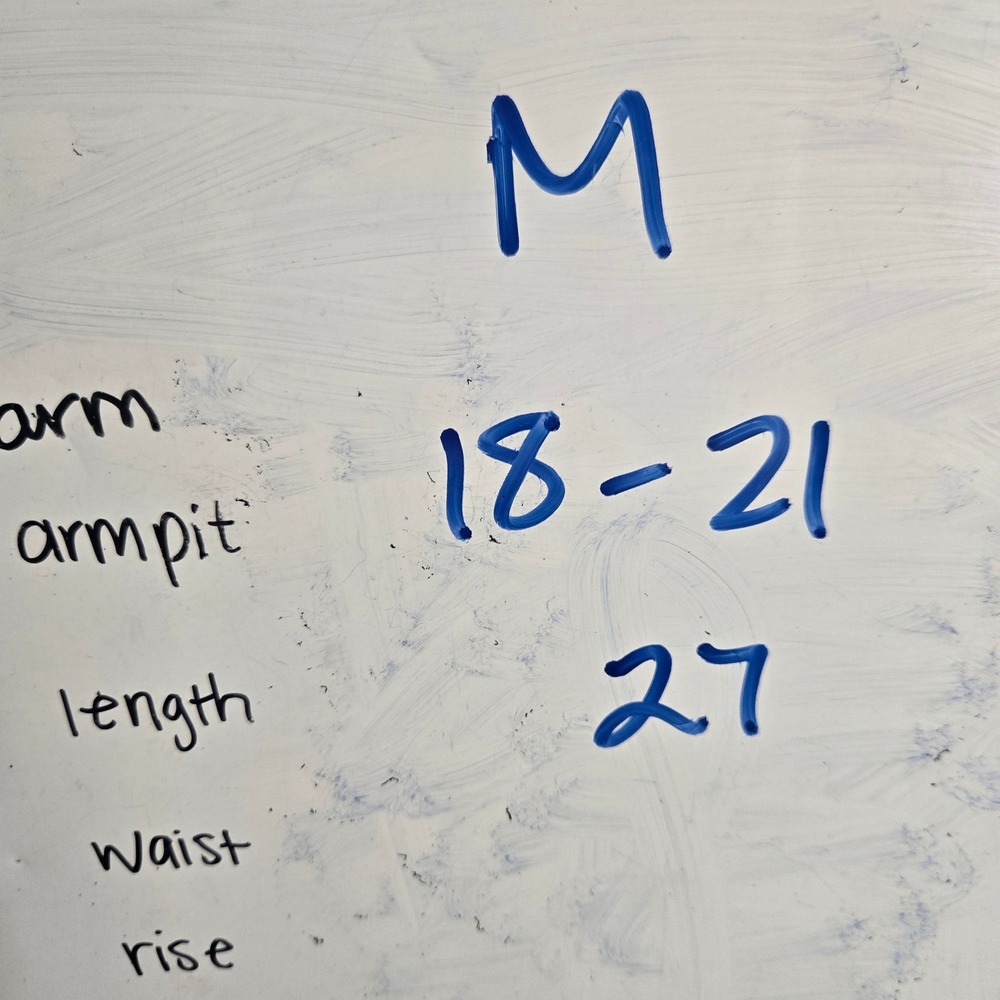 M
arm
armpit 18 - 21
length 27
waist
rise